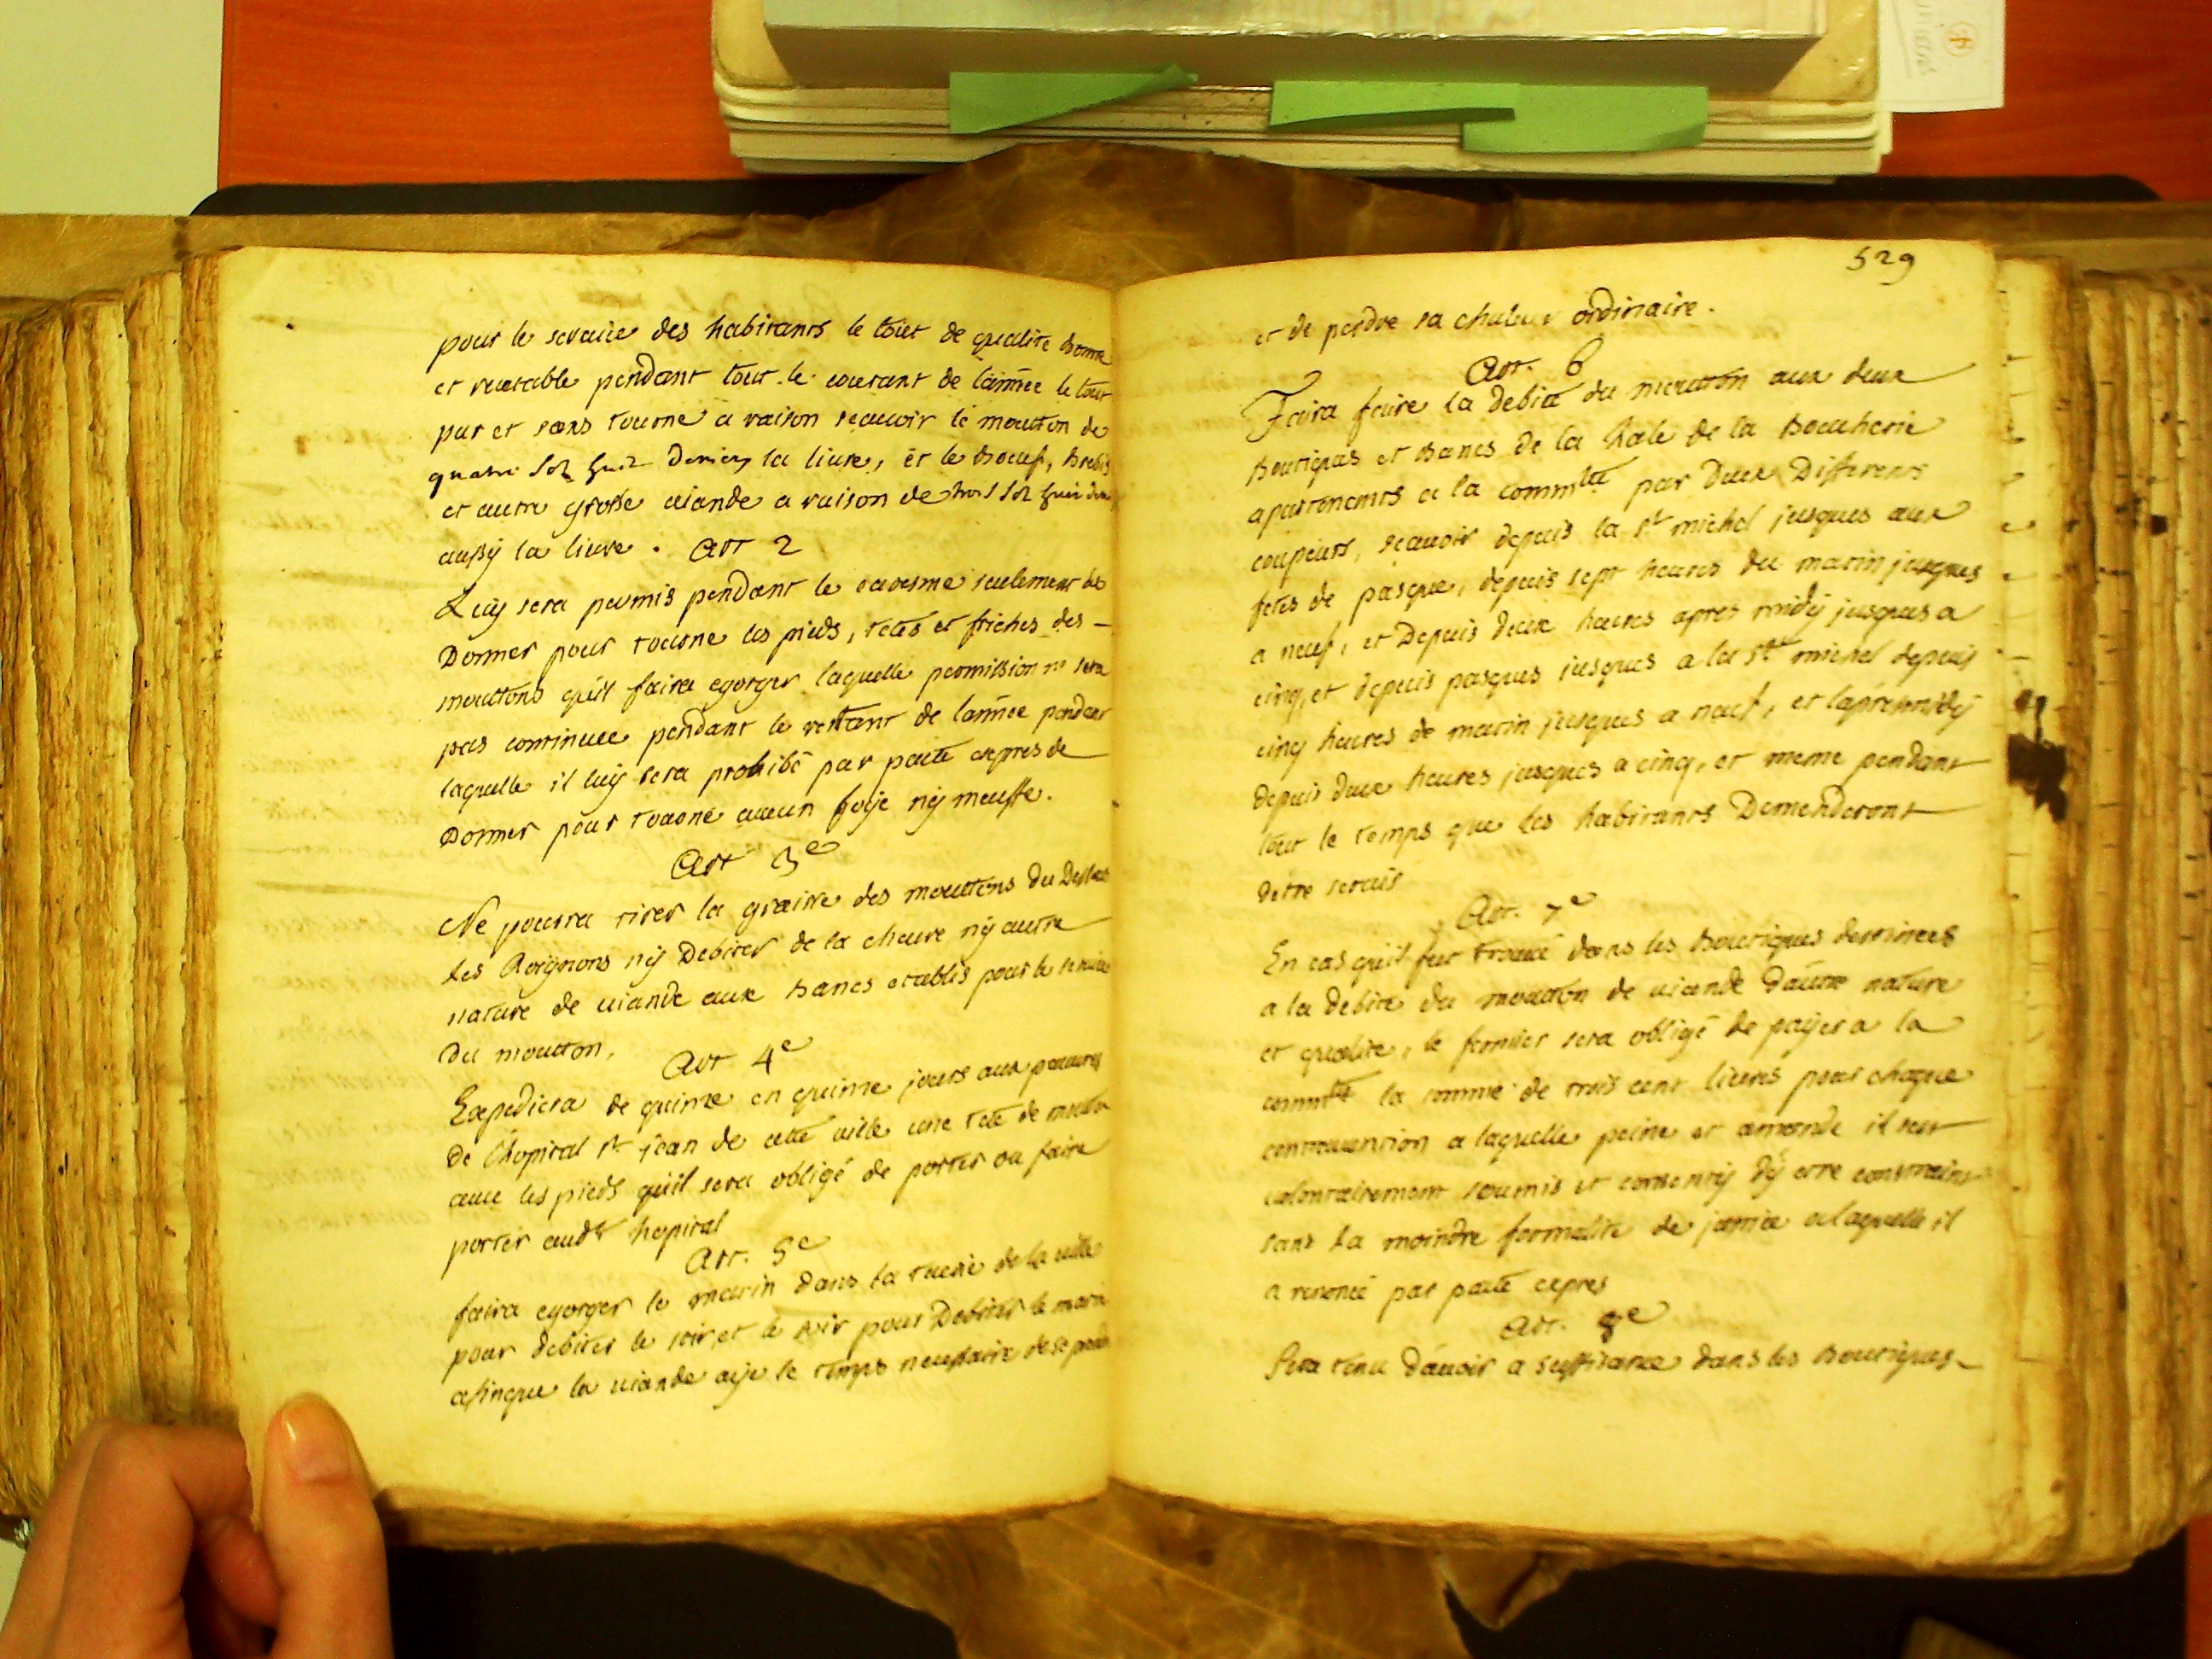 pour le service des habitants le tout de qualite bonne
et recetable pendant tout le courant de lannee le tout
pur et sans tourne a raison scauoir le moutton de
quatre sols huit deniers la liure, et le boeuf, brebis
et autre grosse uiande a raison de trois sols huit den
aussÿ la liure. Art 2
Luÿ sera permis pendant le caresme seulement de
Donner pour tourne les pieds, tetes et friches des
mouttons quil faira egorger laquelle permission ne sera
pas continuee pendant le restant de lannee pendant
laquelle il luÿ sera prohibé par pacte expres de
Donner pour tourne aucun foye nÿ meusse.
Art 3e
Ne pourra tirer la graisse des mouttons du Dessus
les Roignons nÿ Debiter de la cheure nÿ autre
nature de uiande aux bancs etablis pour le seruice
du moutton.
Art 4e
Expediera de quinze en quinze jours aux pauures
de lhopital st jean de cette uille une tete de moutton
auec les pieds quil sera obligé de porter ou faire
porter audt hopital
Art. 5e
faira egorger le matin dans la tuerie de la uille
pour debiter le soir, et le soir pour Debiter le matin
afinque la uiande aÿe le temps necessaire de se
529
et de perdre sa chaleur ordinaire.
Art. 6
Faira faire la debite du moutton aux deux
boutiques et bancs de la hale de la boucherie
apartenants a la commté par Deux Differents
coupeurs, scauoir depuis la st michel jusques aux
fetes de pasque, depuis sept heures du matin jusques
a neuf, et Depuis deux heures apres midÿ jusques a
cinq, et depuis pasques jusques a la st michel depuis
cinq heures de matin jusques a neuf, et lapresmidÿ
depuis deux heures jusques a cinq, et meme pendant
tout le temps que les habitants Demenderont
detre seruis
Art. 7e
En cas quil fut trouué dans les boutiques destinees
a la debite du moutton de uiande dautre nature
et qualite, le fermier sera obligé de paÿer a la
commté la somme de trois cent liures pour chaque
contrauention a laquelle peine et amande il sest
uolontairement soumis et consentÿ dÿ etre constraint
sans la moindre formalite de justice a laquelle il
a renoncé par pacte expres
Art. 8e
Sera tenu dauoir a suffisance dans les boutiques